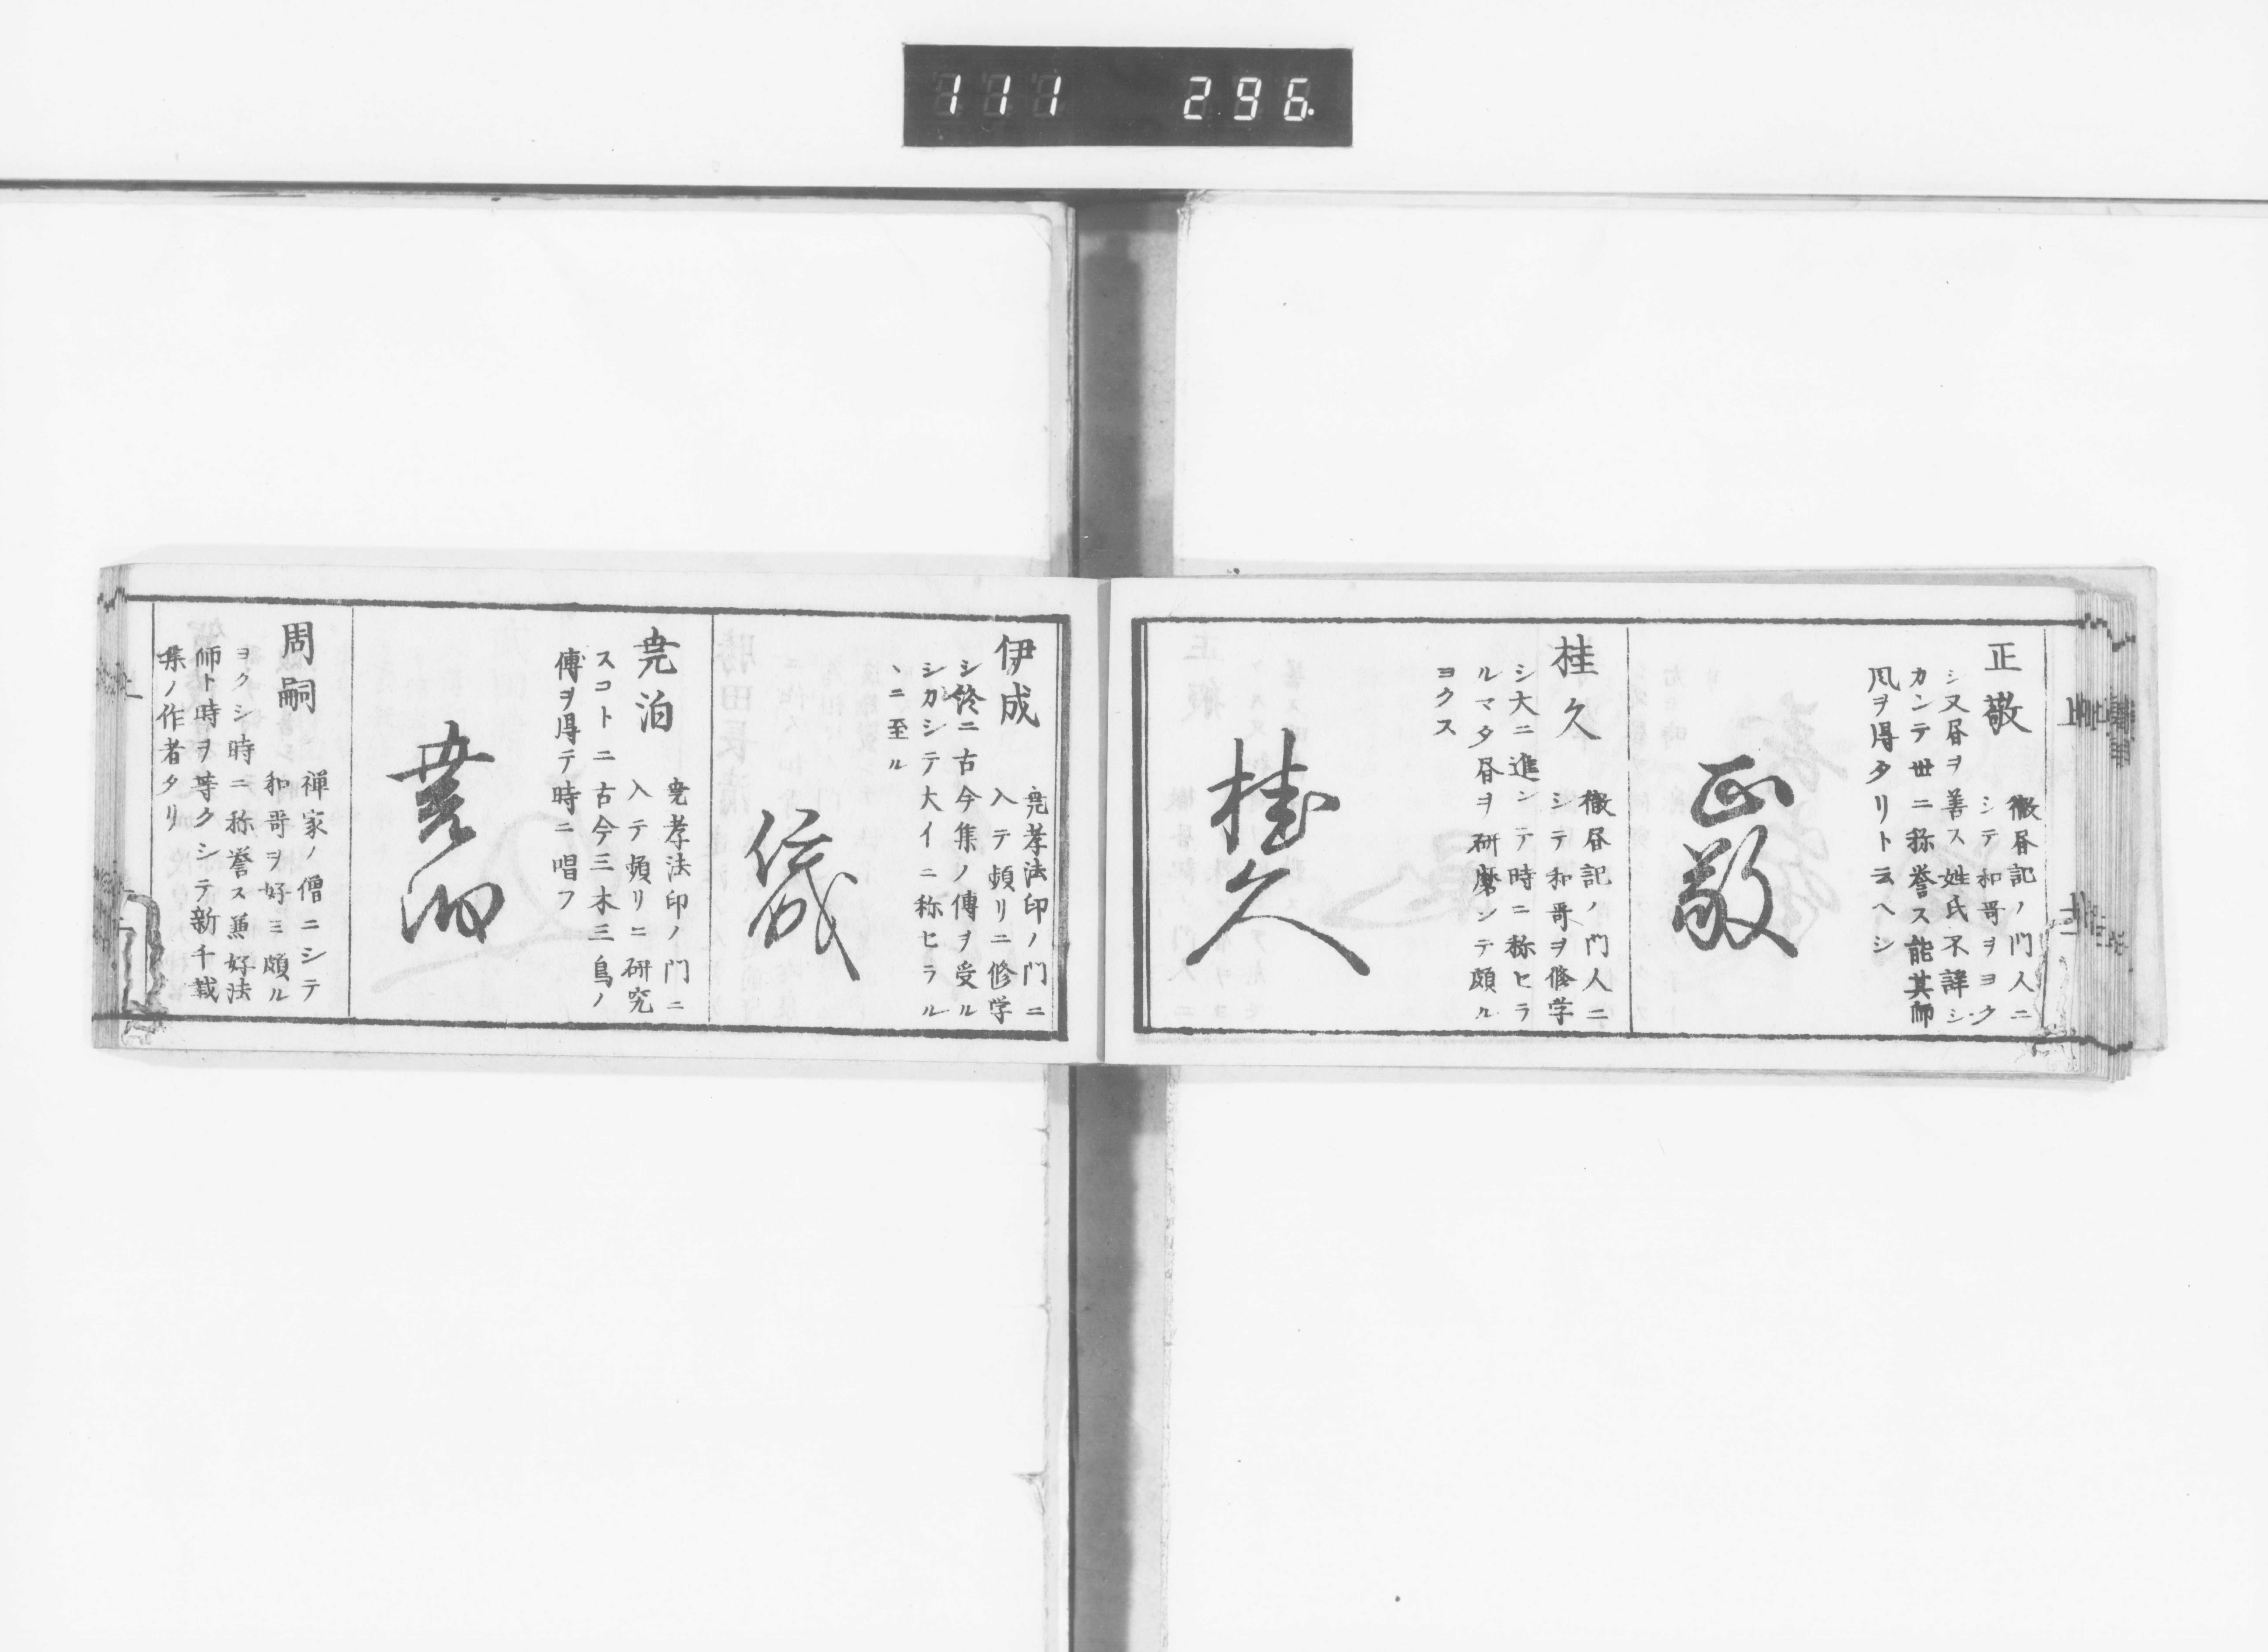 111 296
正敬
徹昼記ノ門人ニ
シテ和哥ヲヨク
シ又昼ヲ善ス姓氏不詳シ
カンテ丗ニ称誉ス能其師
凨ヲ得タリト云ヘシ
正敬
桂久
徹昼記ノ門人ニ
シテ和哥ヲ修学
シ大ニ進ンテ時ニ称ヒラ
ルマタ昼ヲ研磨ンテ頗ル
ヨクス
桂久
伊成
尭孝法印ノ門ニ
入テ頻リニ修学
シ終ニ古今集ノ傳ヲ受ル
シカシテ大イニ称ヒラル
丶ニ至ル
伊成
尭泊
尭孝法印ノ門ニ
入テ頻リニ研究
スコトニ古今三木三鳥ノ
傳ヲ得テ時ニ唱フ
尭泊
周嗣
禅家ノ僧ニシテ
和哥ヲ好ミ頗ル
ヨクシ時ニ称誉ス兼好法
師ト時ヲ等クシテ新千載
集ノ作者タリ